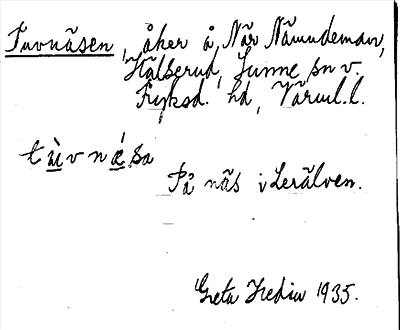 Tuvnäsen, åker å När Nämndeman,
Hälserud, Sunne sn v.
Fryksd. hd, Värml. l.
tùvnésa
På näs i Lerälven.
Greta Hedin 1935.